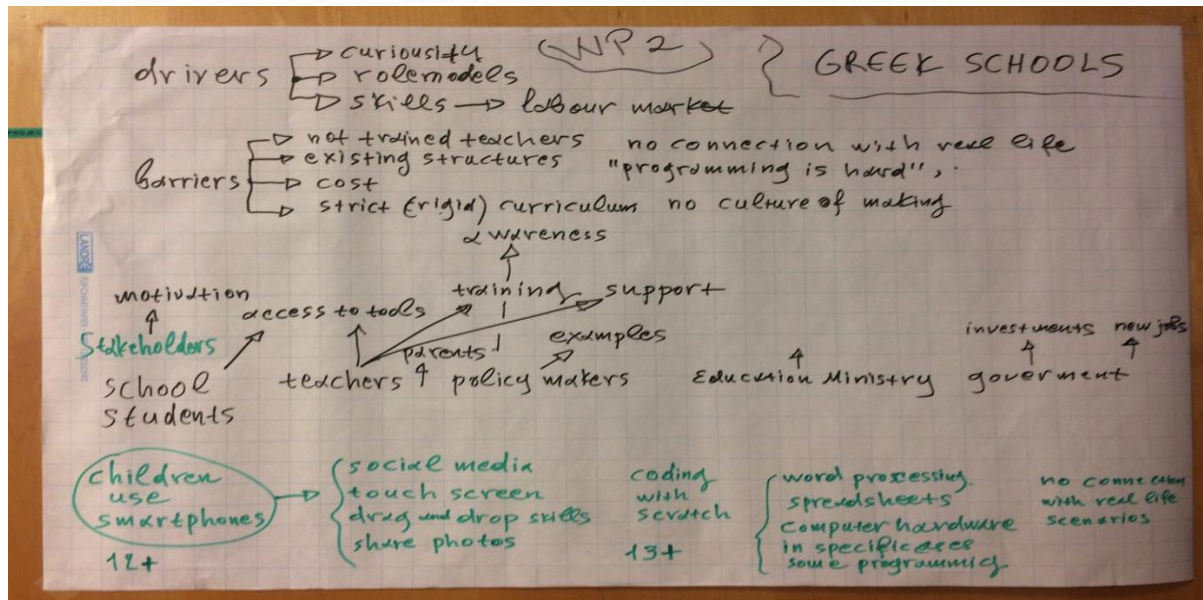 WP2
GREEK SCHOOLS
drivers
curiousity
rolemodels
skills → labour market
barriers
not trained teachers
existing structures
cost
strict (rigid) curriculum
no connection with real life
"programming is hard",
no culture of making
awareness
motivation
access to tools
training
support
Stakeholders
parents
examples
investments
new jobs
school
students
teachers
policy makers
Education Ministry
goverment
children
use
smartphones
12+
social media
touch screen
drag and drop skills
share photos
coding
with
scratch
13+
word processing
spreadsheets
computer hardware
in specific cases
some programmig
no connection
with real life
scenarios
LANDRÉ